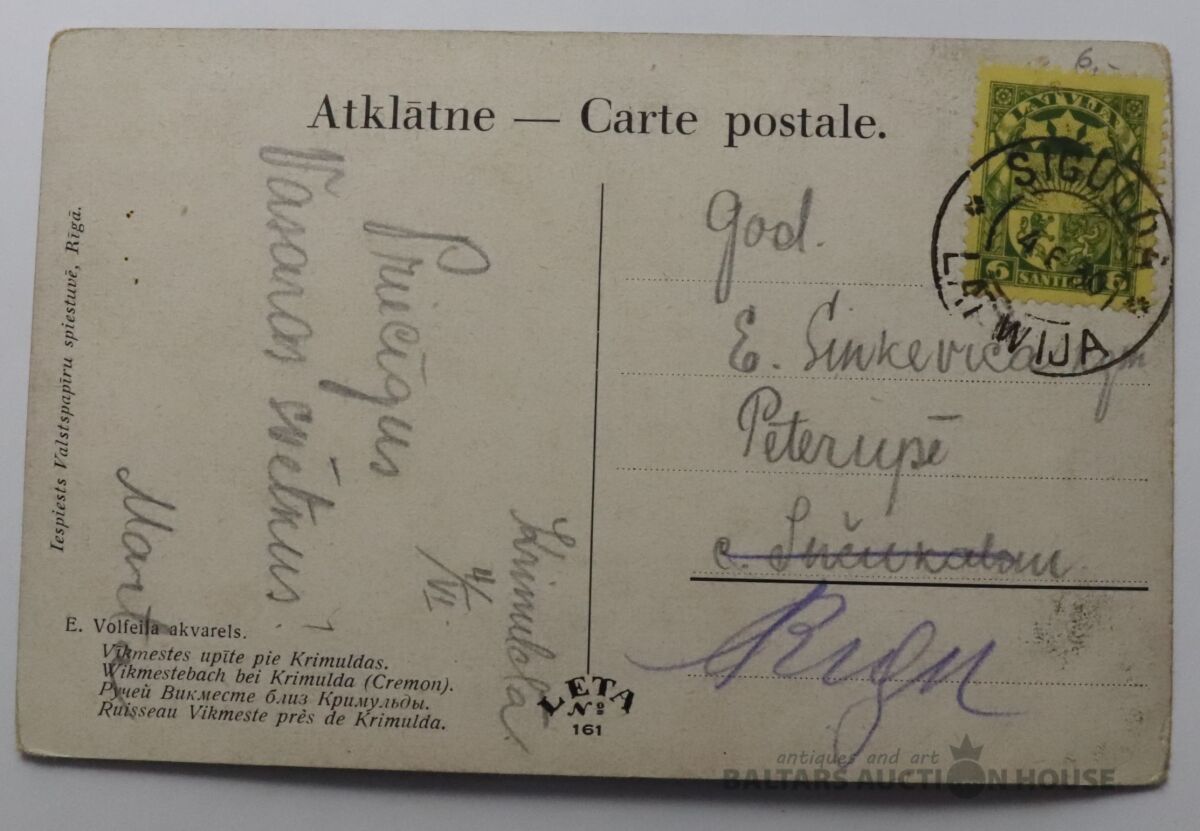 6,-
Atklātne — Carte postale.
LATVIJA
5 SANTI 5
SIGULDĀ
4.6.
LATWIJA
Priecīgus
Vasaras svētkus!
4/VI
Krimuldā.
Marta
God.
E. Sinkeviča kgm
Pēterupē
c. Inčukalnu
Rīgu
Iespiests Valstspapīru spiestuvē, Rīgā.
E. Volfeila akvarels.
Vikmestes upīte pie Krimuldas.
Wikmestebach bei Krimulda (Cremon).
Ручей Викместе близ Кримульды.
Ruisseau Vikmeste près de Krimulda.
LETA
№
161
antiques and art
BALTARS AUCTION HOUSE